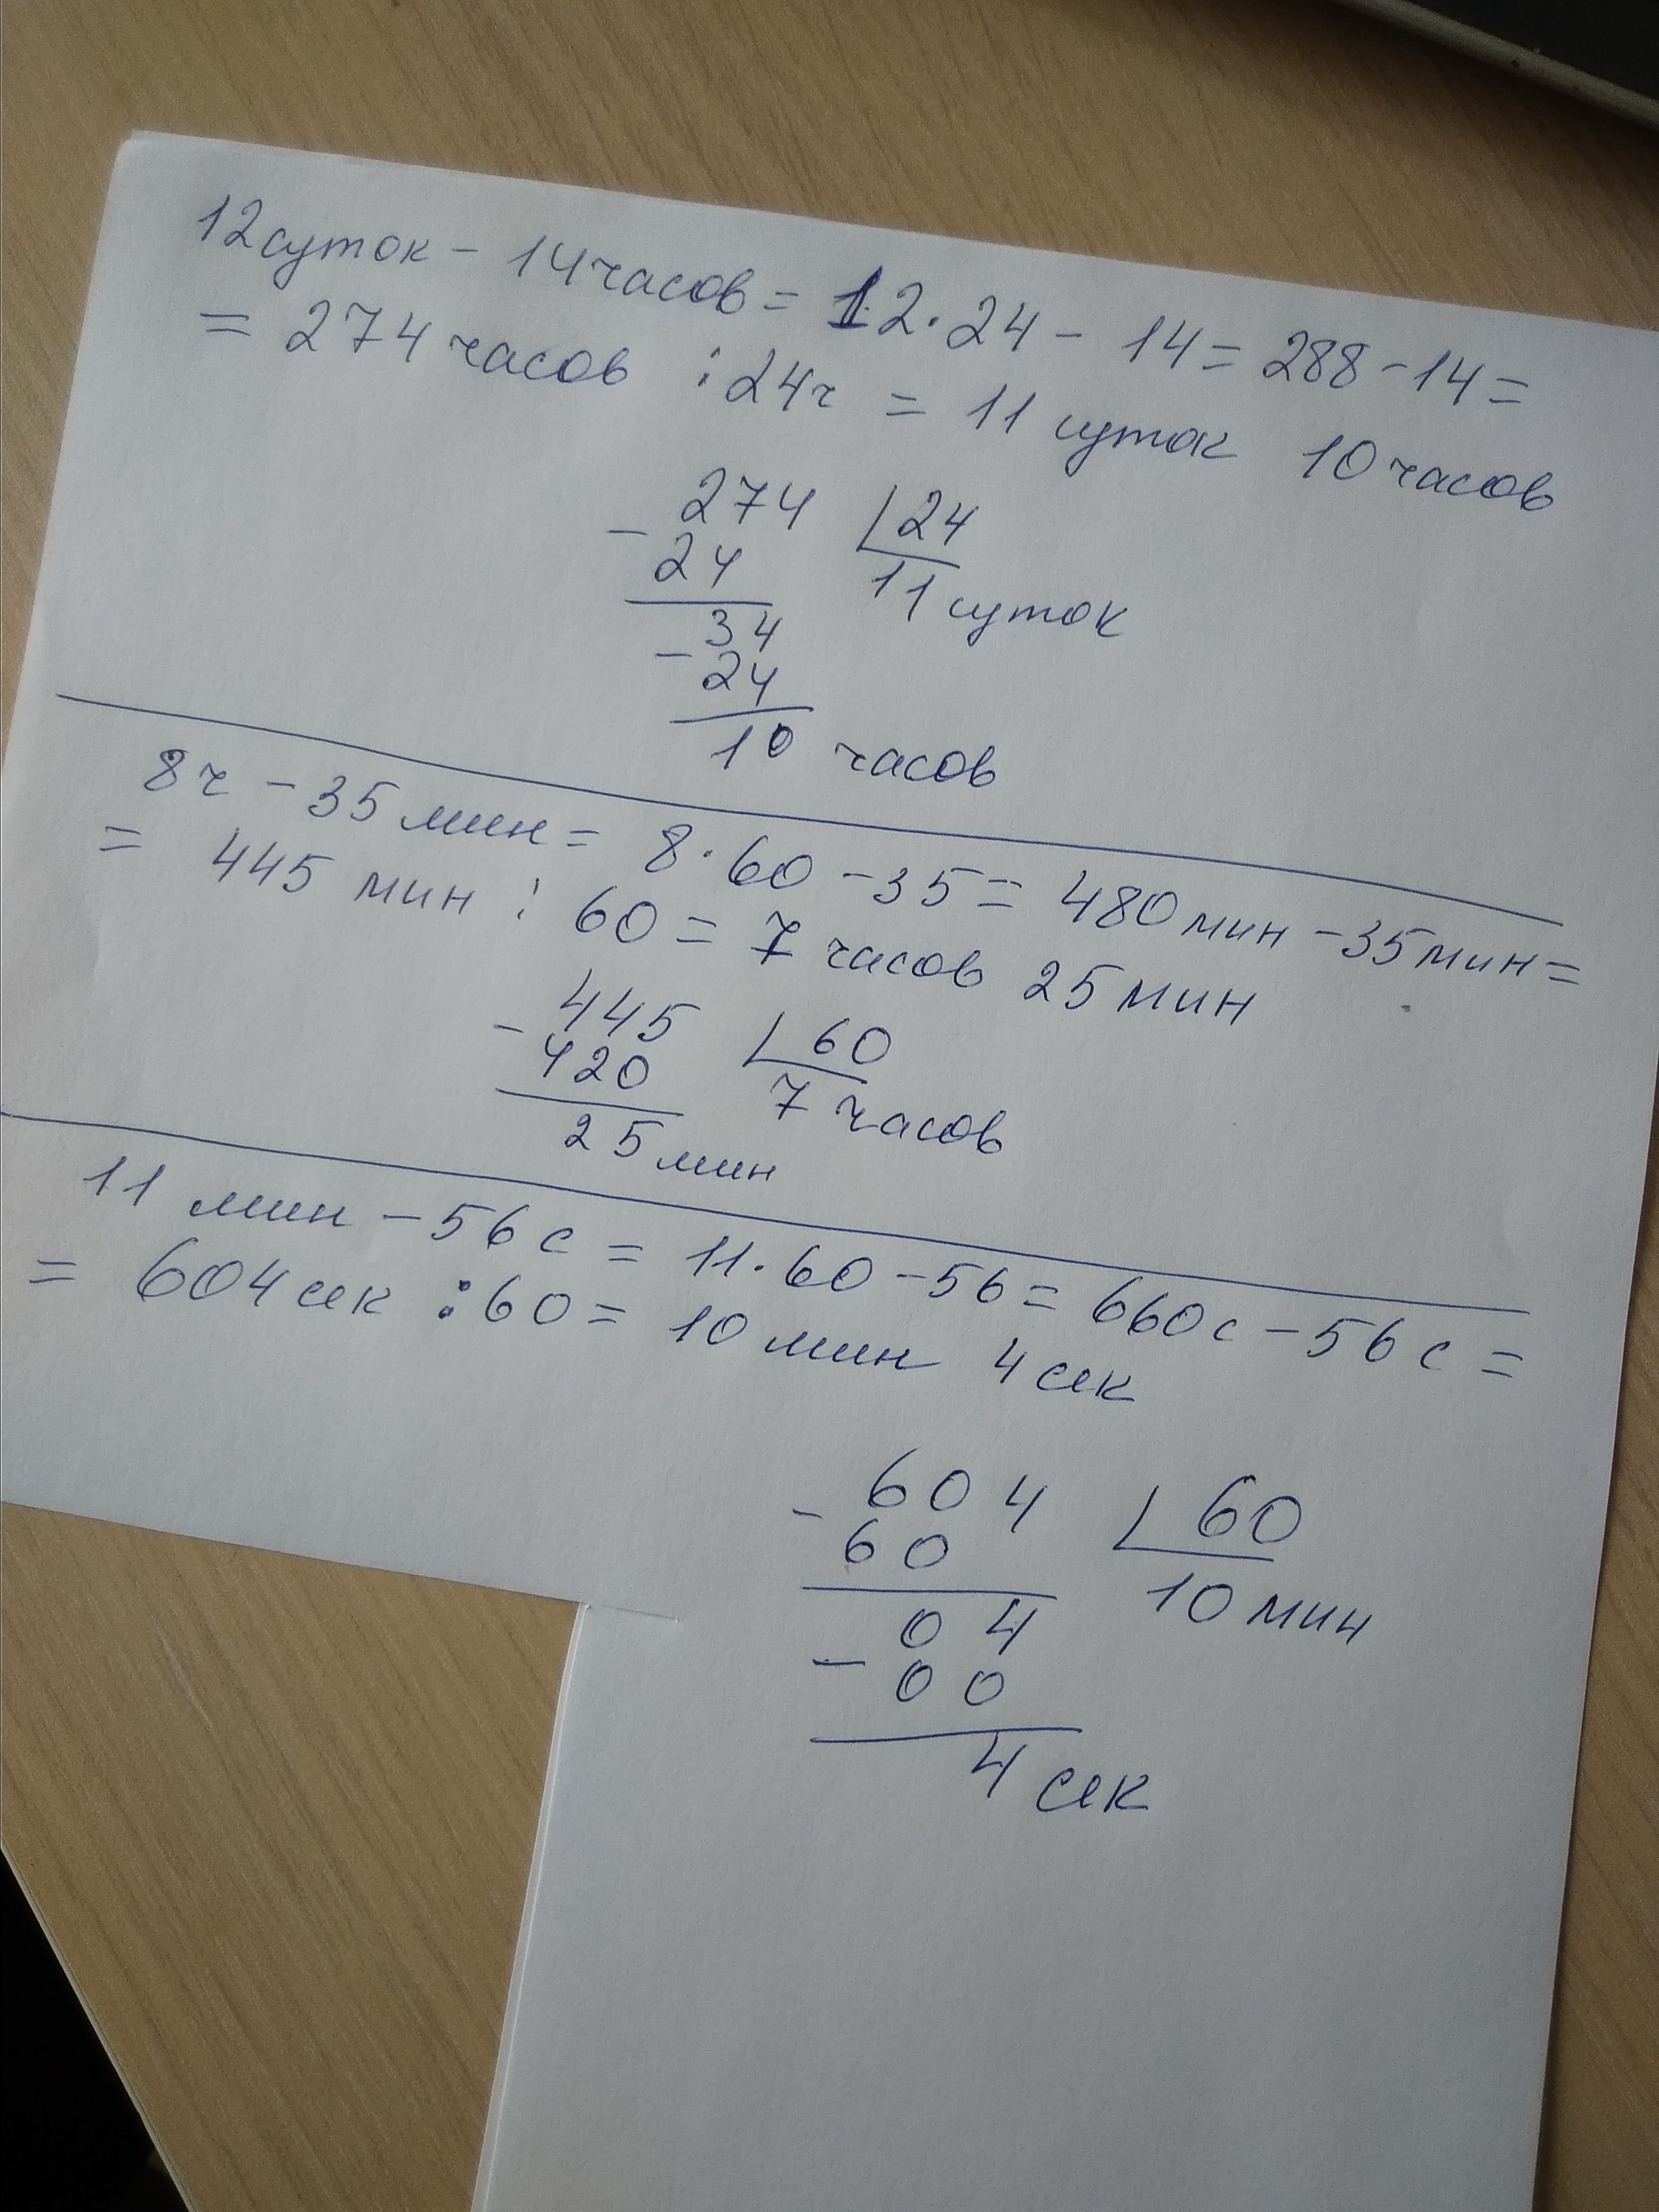 12суток - 14часов = 12·24 - 14 = 288 - 14 =
= 274 часов : 24ч = 11 суток 10 часов
- 274 24
24 11 суток
34
- 24
10 часов
8ч - 35 мин = 8·60 - 35 = 480 мин - 35 мин =
= 445 мин : 60 = 7 часов 25 мин
- 445 60
420 7 часов
25 мин
11 мин - 56 с = 11·60 - 56 = 660 с - 56 с =
= 604 сек : 60 = 10 мин 4 сек
- 604 60
60 10 мин
04
- 00
4 сек